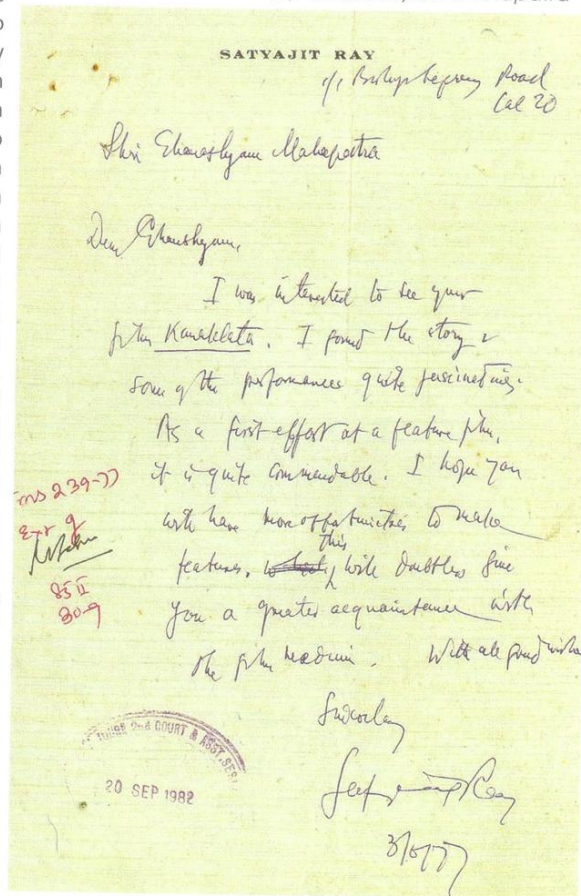 SATYAJIT RAY
1/1 Bishop Lefroy Road
Cal 20
Shri Ghanashyam Mahapatra
Dear Ghanshyam,
I was interested to see your
film Kanaklata. I found the story &
some of the performances quite fascinating.
As a first effort at a feature film,
it is quite commendable. I hope you
will have more opportunities to make
features. This will doubtless give
you a greater acquaintance with
the film medium. With all good wishes
Sincerely
Satyajit Ray
2nd COURT & ASST. SES
20 SEP 1982